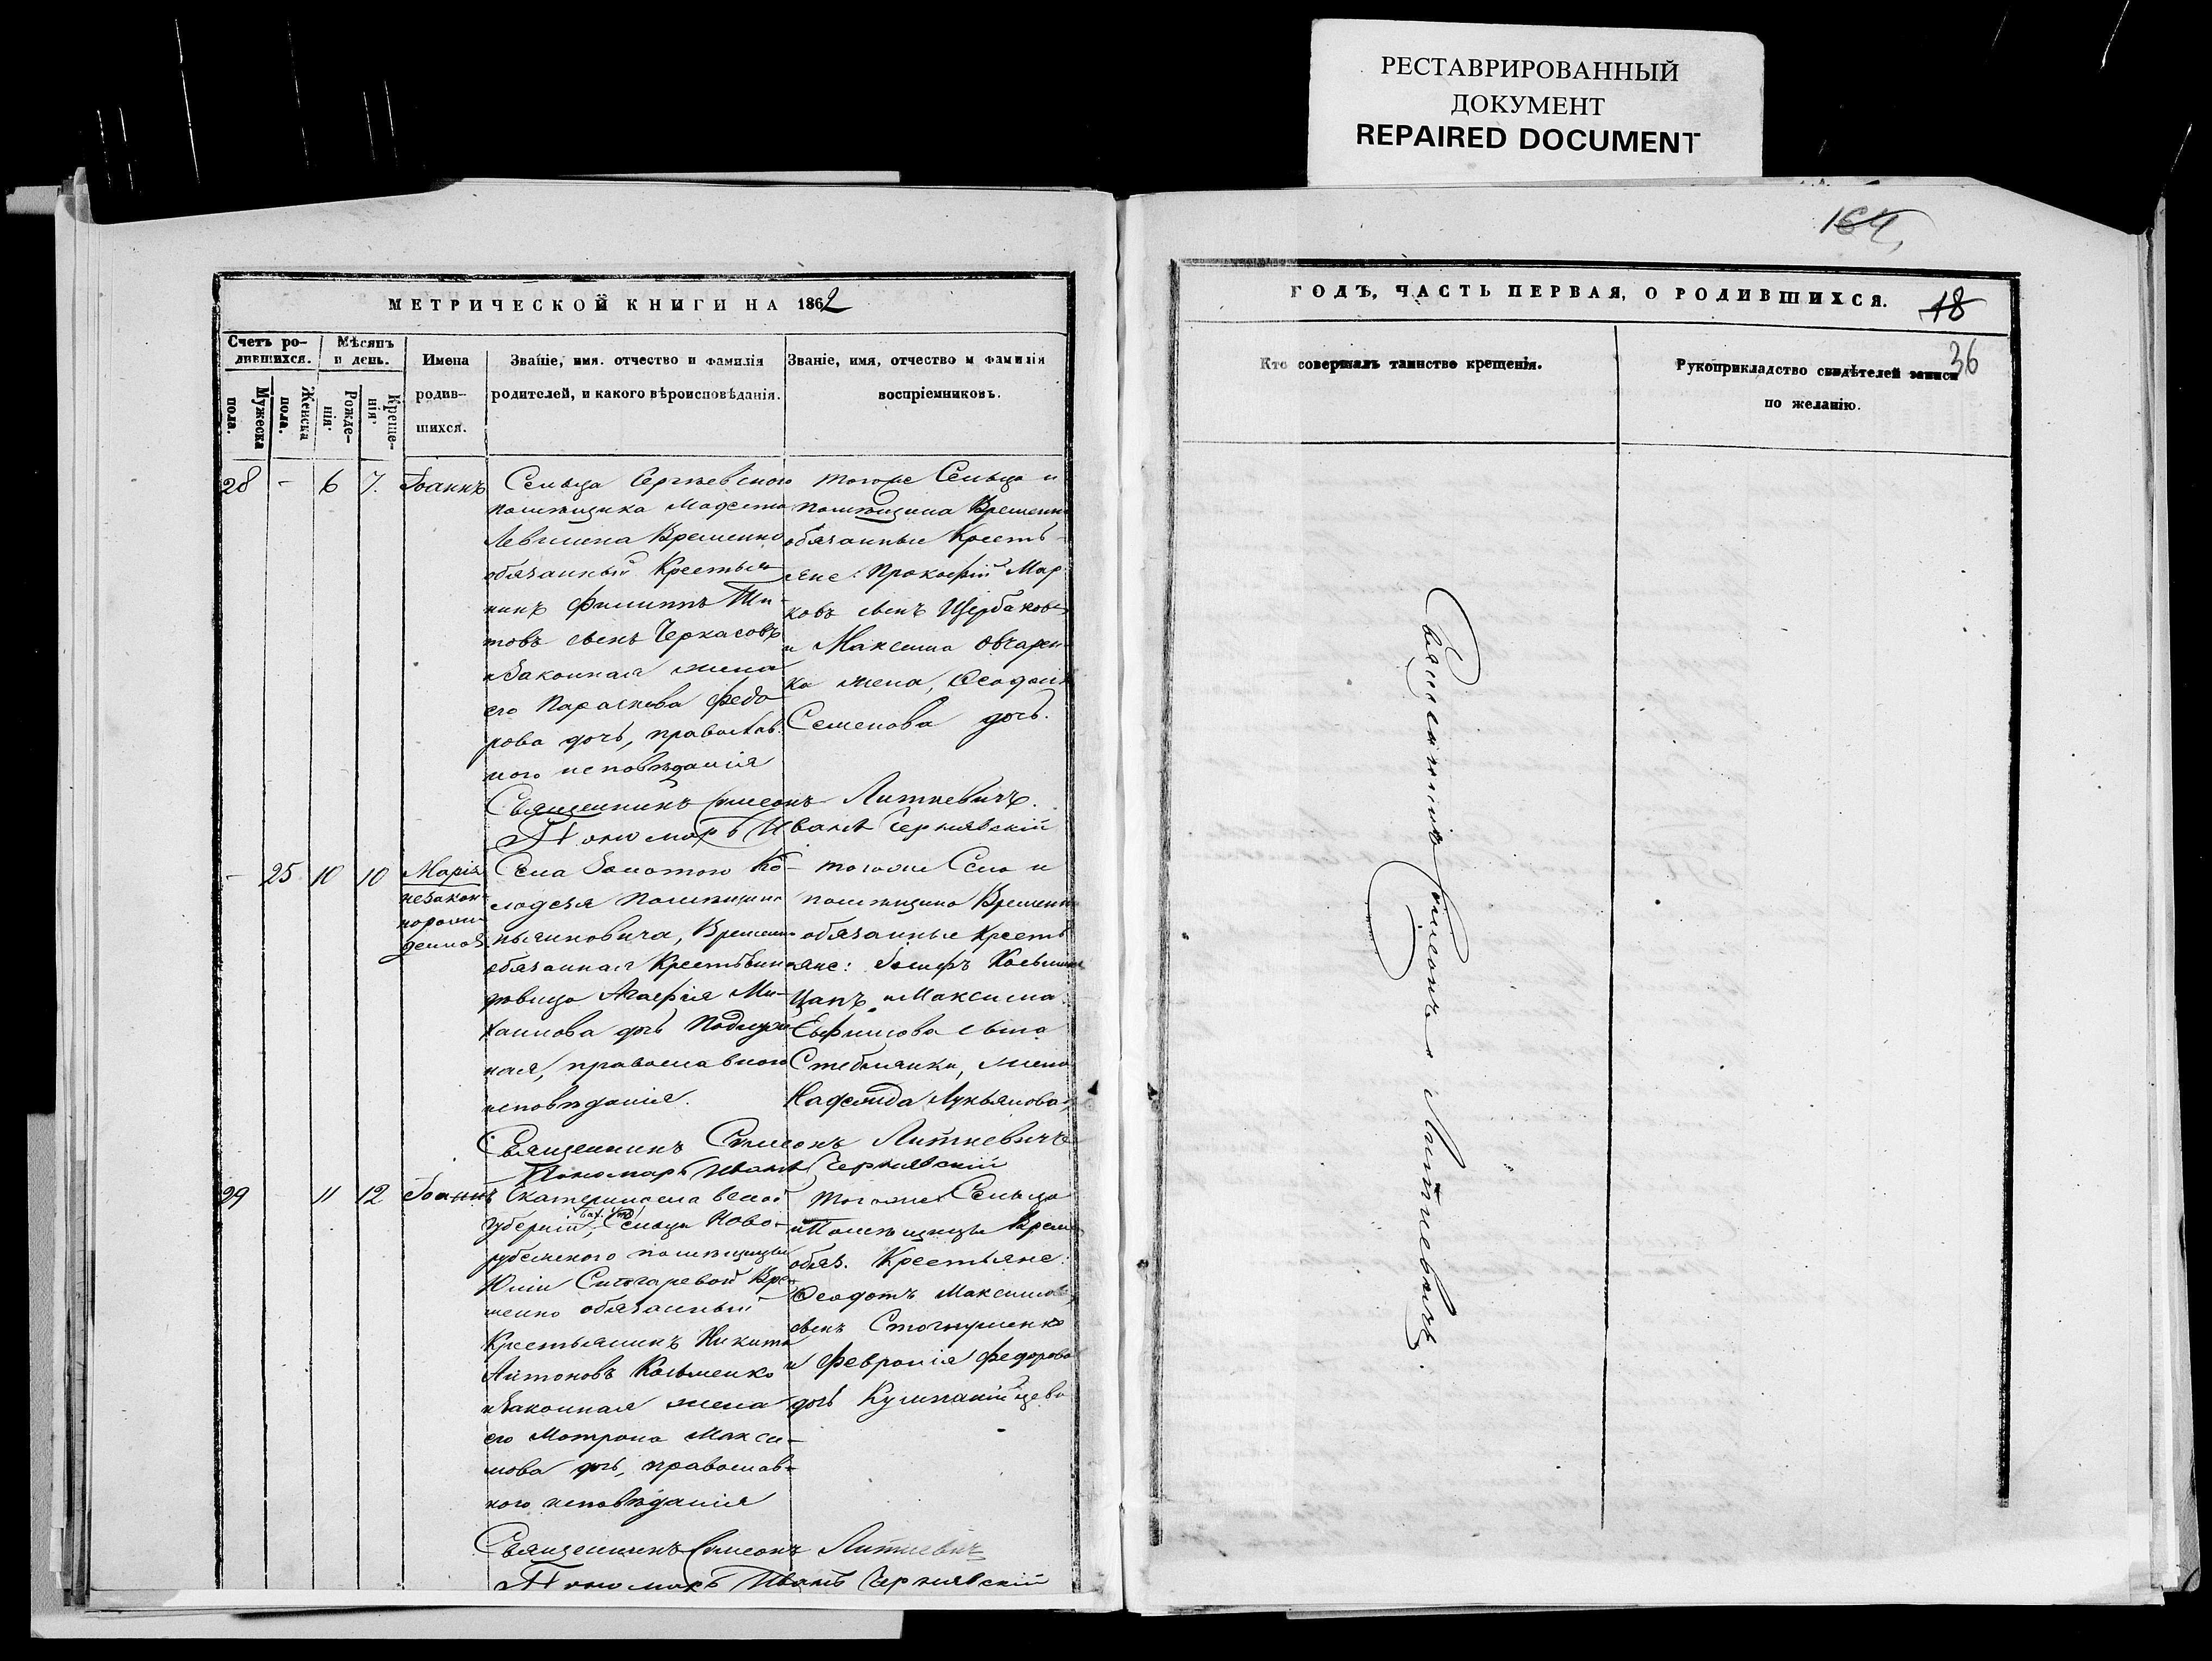 РЕСТАВРИРОВАННЫЙ
ДОКУМЕНТ
REPAIRED DOCUMENT
164
МЕТРИЧЕСКОЙ КНИГИ НА 1862
Счетъ ро-
дившихся.
Мужеска
пола.
Женска
пола.
Мѣсяцъ
и день.
Рожде-
нія.
Креще-
нія.
Имена
родив-
шихся.
Званіе, имя. отчество и фамилія
родителей, и какого вѣроисповѣданія.
Званіе, имя, отчество и фамилія
воспріемниковъ.
28 - 6 7. Іоаннъ
Сельца Сергѣевского
помѣщика
Временно
обязанный Крестья
нинъ Филиппъ Ти-
товъ сынъ Черкасовъ
и Законная жена
его Параскева Федо
рова дочь, православ.
ного исповѣданія
тогоже Сельца и
помѣщика Временно
обязанные Кресть-
яне: Прокофій Мар
ковъ сынъ Щербаковъ
и Максима Овчарен
ка жена, Феодосія
Семенова дочь.
Священникъ Симеонъ Литкевичъ.
Пономарь Иванъ Чернявскій
- 25 10 10 Марія
незакон-
норож-
денная
Села Золотого Ко-
лодезя Помѣщика
Временно
обязанная Крестьянка
дѣвица Агафія Ми-
хаилова дочь
ная, православного
исповѣданія.
тогоже Села и
помѣщика Временно
обязанные Кресть
яне: Іосифъ
Цапъ и Максима
Ефимова сына
Стеблянки, жена
Надежда Лукьянова
Священникъ Симеонъ Литкевичъ
Пономарь Иванъ Чернявскій
29 11 12 Іоаннъ
Екатеринославской
Губерніи, Бах. уѣз. Сельца Ново-
рубежного помѣщицы
Юліи Вре-
менно обязанный
Крестьянинъ Никита
Антоновъ Козьменко
и Законная жена
его Матрона Макси-
мова дочь, православ-
ного исповѣданія
тогоже Сельца
и Помѣщицы Време
обяз. Крестьяне:
Феодотъ Максимовъ
сынъ
и Февронія Федорова
дочь
Священникъ Симеонъ Литкевичъ
Пономарь Иванъ Чернявскій
ГОДЪ, ЧАСТЬ ПЕРВАЯ, О РОДИВШИХСЯ.
18
36
Кто совершалъ таинство крещенія.
Рукоприкладство свидѣтелей записи
по желанію.
Священникъ Симеонъ Литкевичъ.